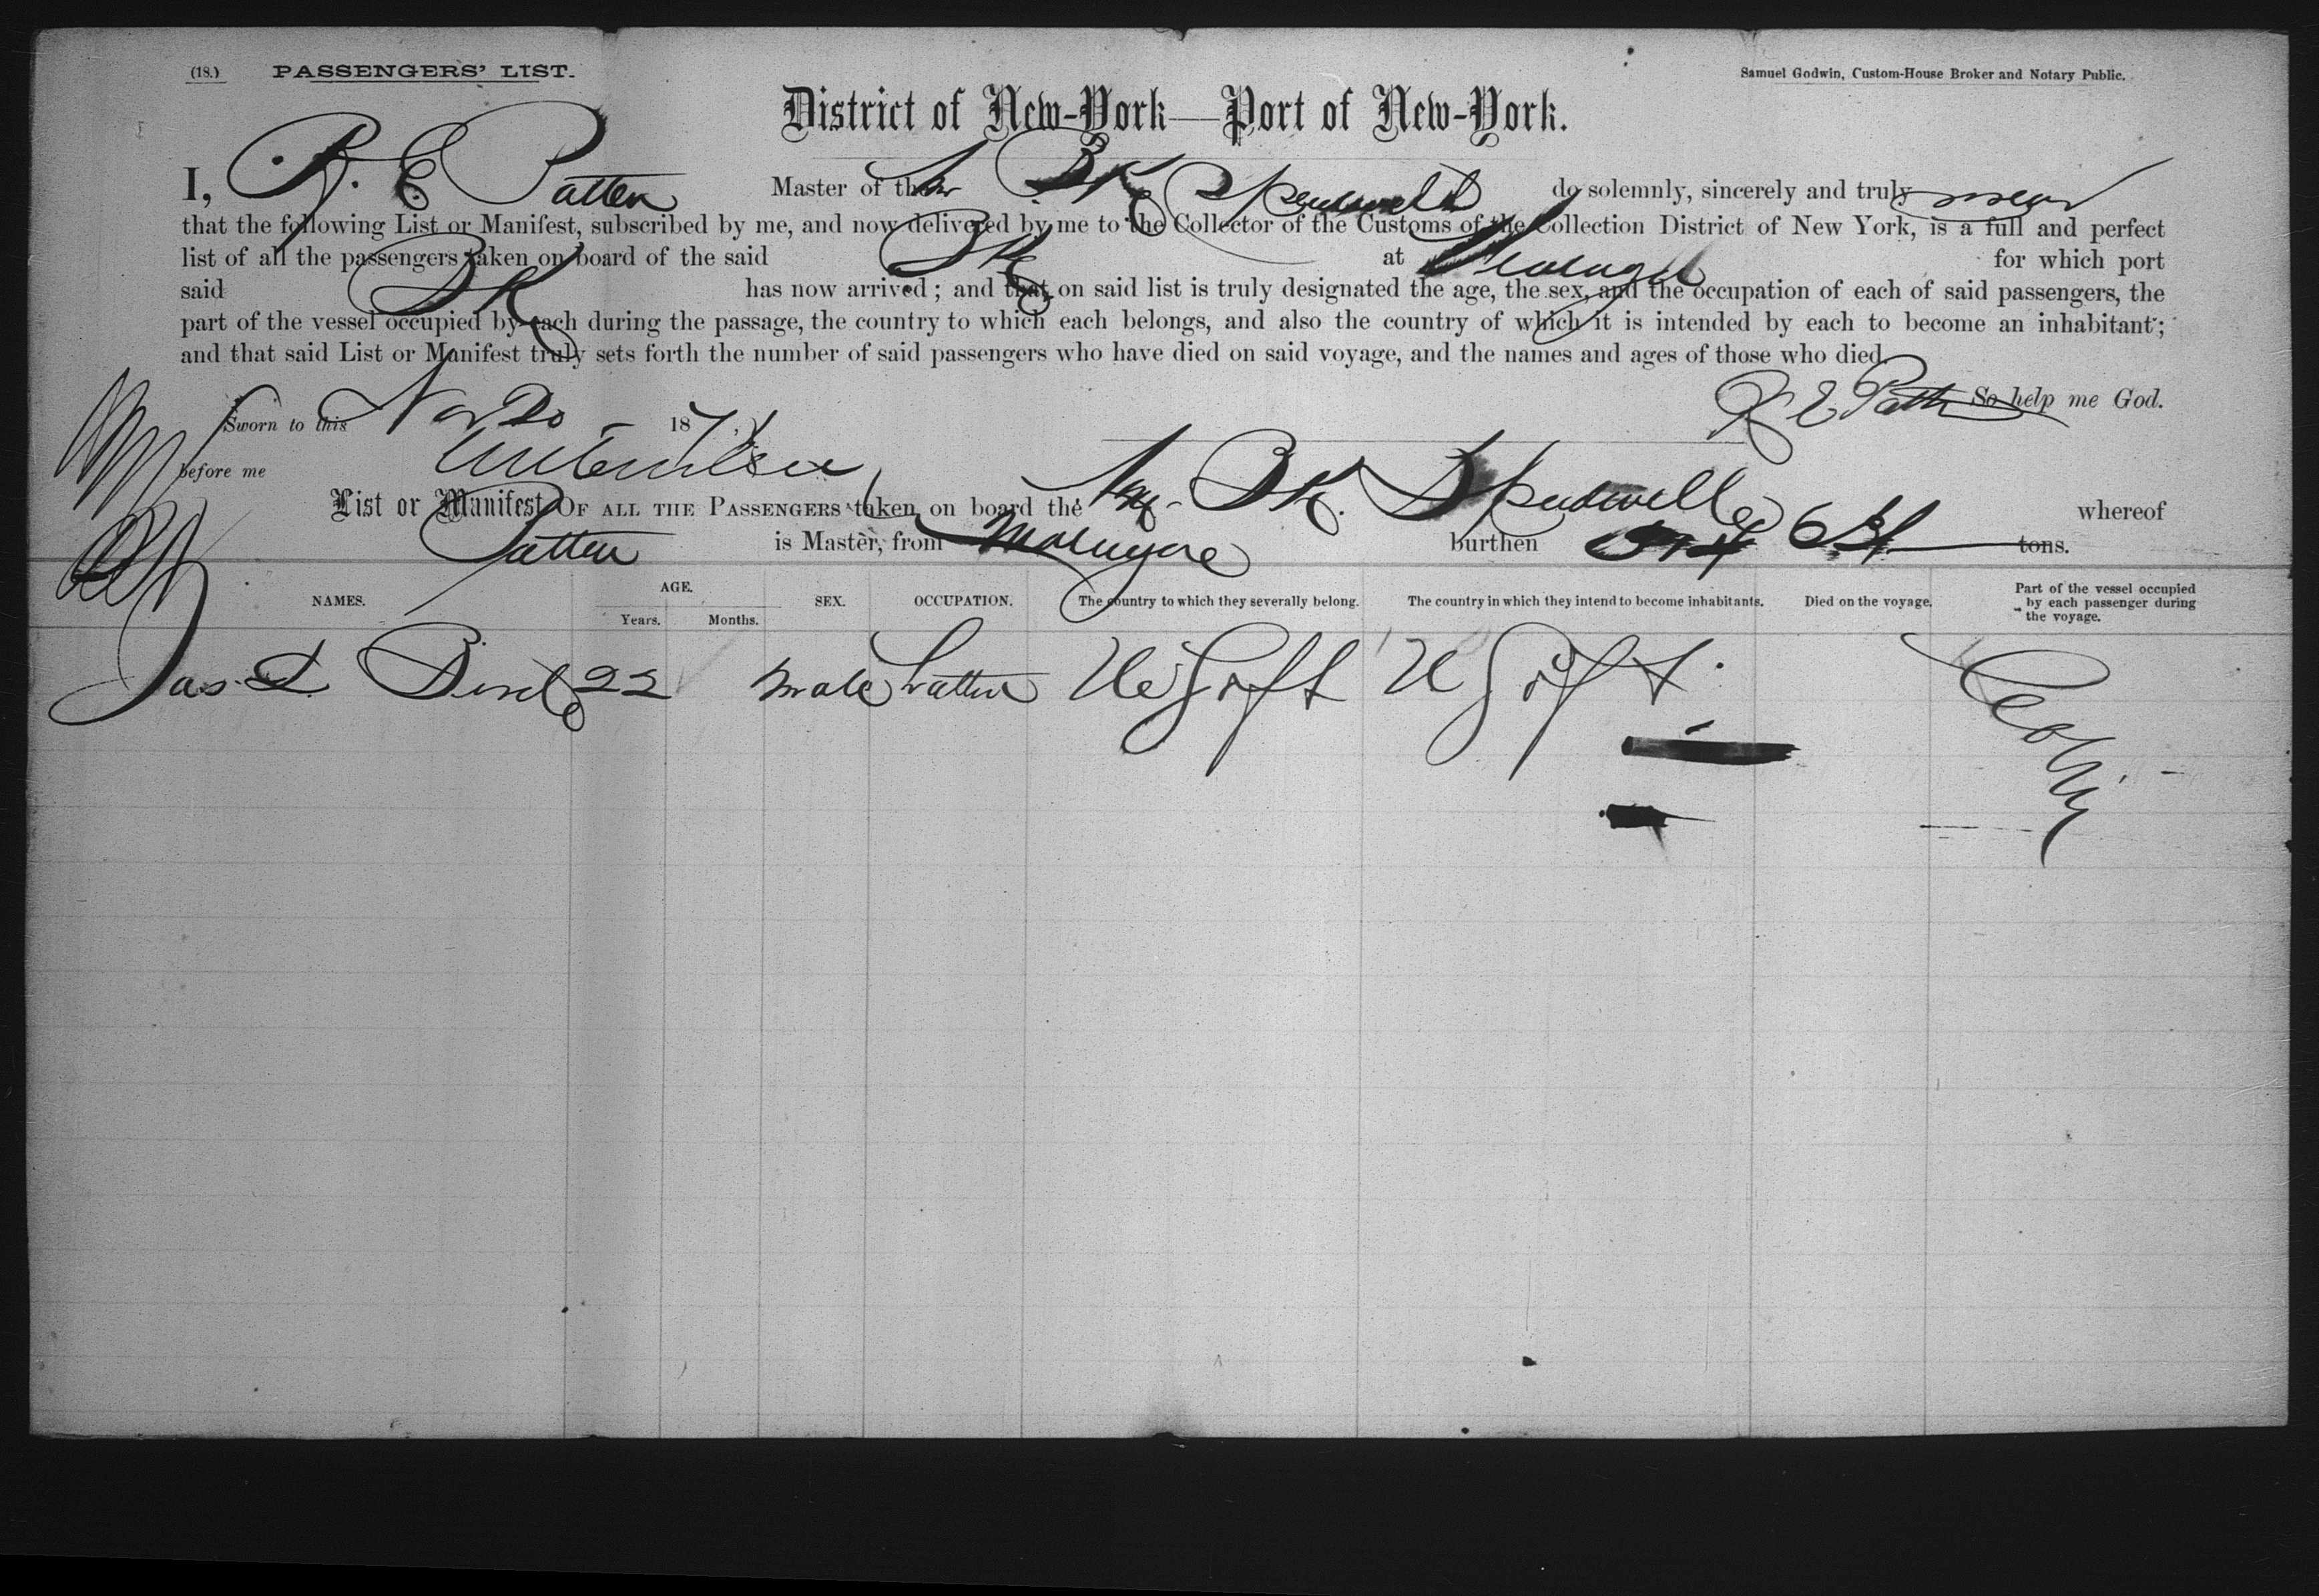 (18.) PASSENGERS' LIST. Samuel Godwin, Custom-House Broker and Notary Public.
District of New-York—Port of New-York.
I, R. E. Patten Master of the Am Bk Speedwell do solemnly, sincerely and truly swear
that the following List or Manifest, subscribed by me, and now delivered by me to the Collector of the Customs of the Collection District of New York, is a full and perfect
list of all the passengers taken on board of the said Bk at Malaga for which port
said Bk has now arrived; and that on said list is truly designated the age, the sex, and the occupation of each of said passengers, the
part of the vessel occupied by each during the passage, the country to which each belongs, and also the country of which it is intended by each to become an inhabitant;
and that said List or Manifest truly sets forth the number of said passengers who have died on said voyage, and the names and ages of those who died.
R E Patten So help me God.
Sworn to this Nov 20 187
before me
List or Manifest OF ALL THE PASSENGERS taken on board the Am Bk. Speedwell whereof
Patten is Master, from burthen tons.
NAMES. AGE. Years. Months. SEX. OCCUPATION. The country to which they severally belong. The country in which they intend to become inhabitants. Died on the voyage. Part of the vessel occupied by each passenger during the voyage.
Jas. L. 22 Male U S of A U S of A Cabin